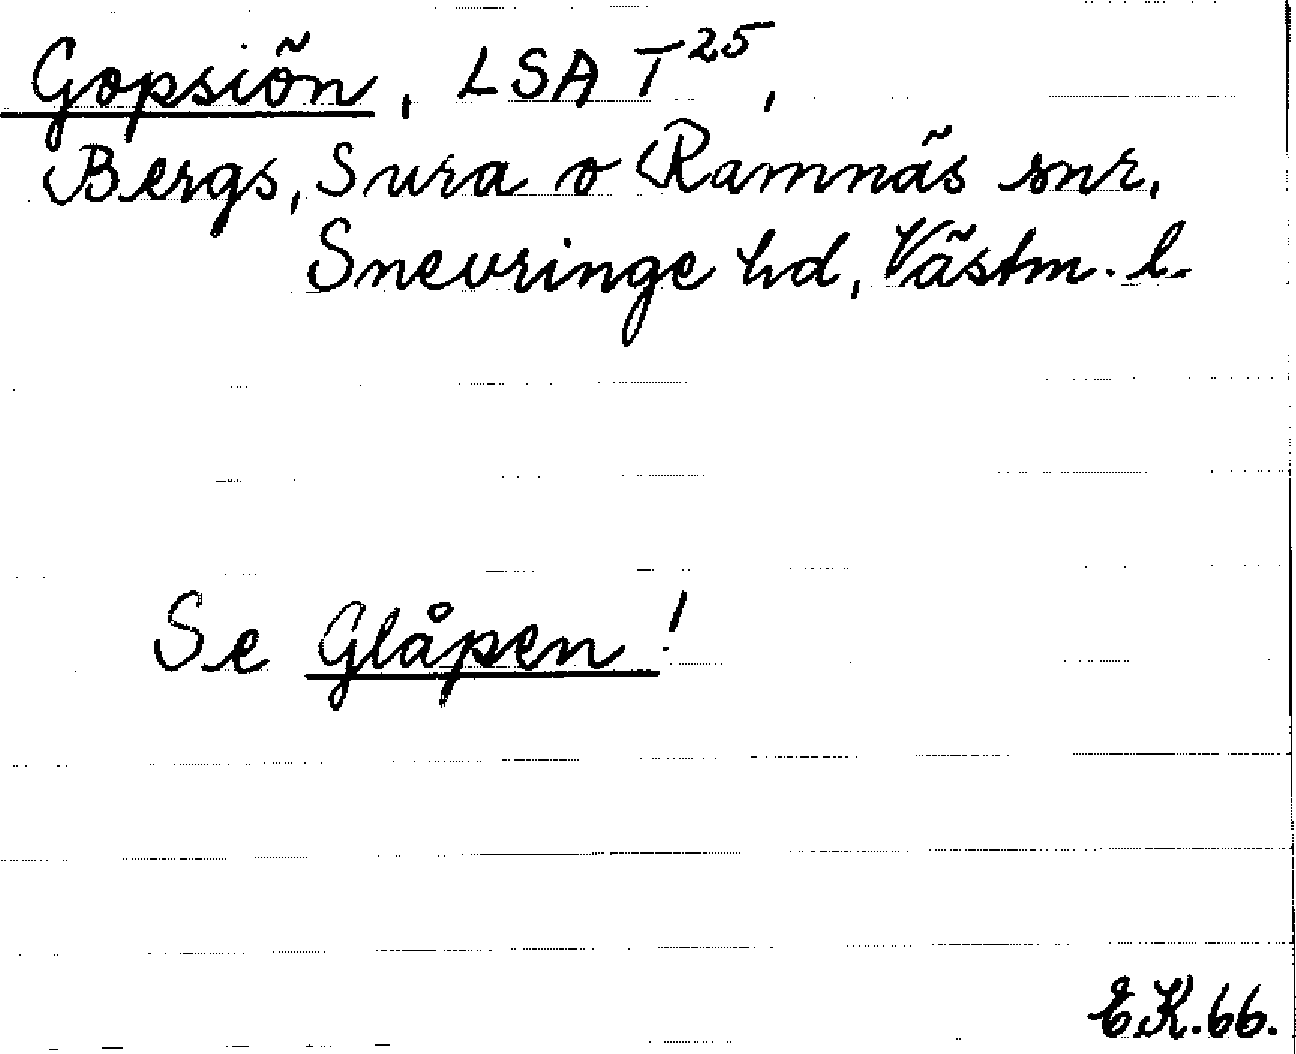 Gopsiön, LSA T25,
Bergs, Sura o Ramnäs snr,
Snevringe hd, Västm. l.
Se Glåpen!
E.K. 66.